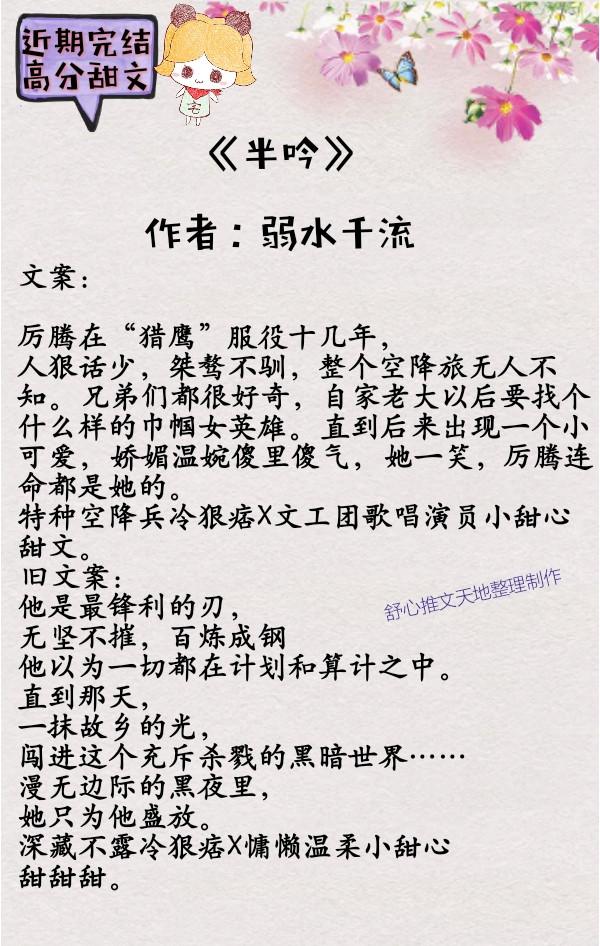 近期完结
高分甜文
宅
《半吟》
作者：弱水千流
文案：
厉腾在“猎鹰”服役十几年，
人狠话少，桀骜不驯，整个空降旅无人不
知。兄弟们都很好奇，自家老大以后要找个
什么样的巾帼女英雄。直到后来出现一个小
可爱，娇媚温婉傻里傻气，她一笑，厉腾连
命都是她的。
特种空降兵冷狠痞X文工团歌唱演员小甜心
甜文。
旧文案：
他是最锋利的刃，
舒心推文天地整理制作
无坚不摧，百炼成钢
他以为一切都在计划和算计之中。
直到那天，
一抹故乡的光，
闯进这个充斥杀戮的黑暗世界……
漫无边际的黑夜里，
她只为他盛放。
深藏不露冷狠痞X慵懒温柔小甜心
甜甜甜。